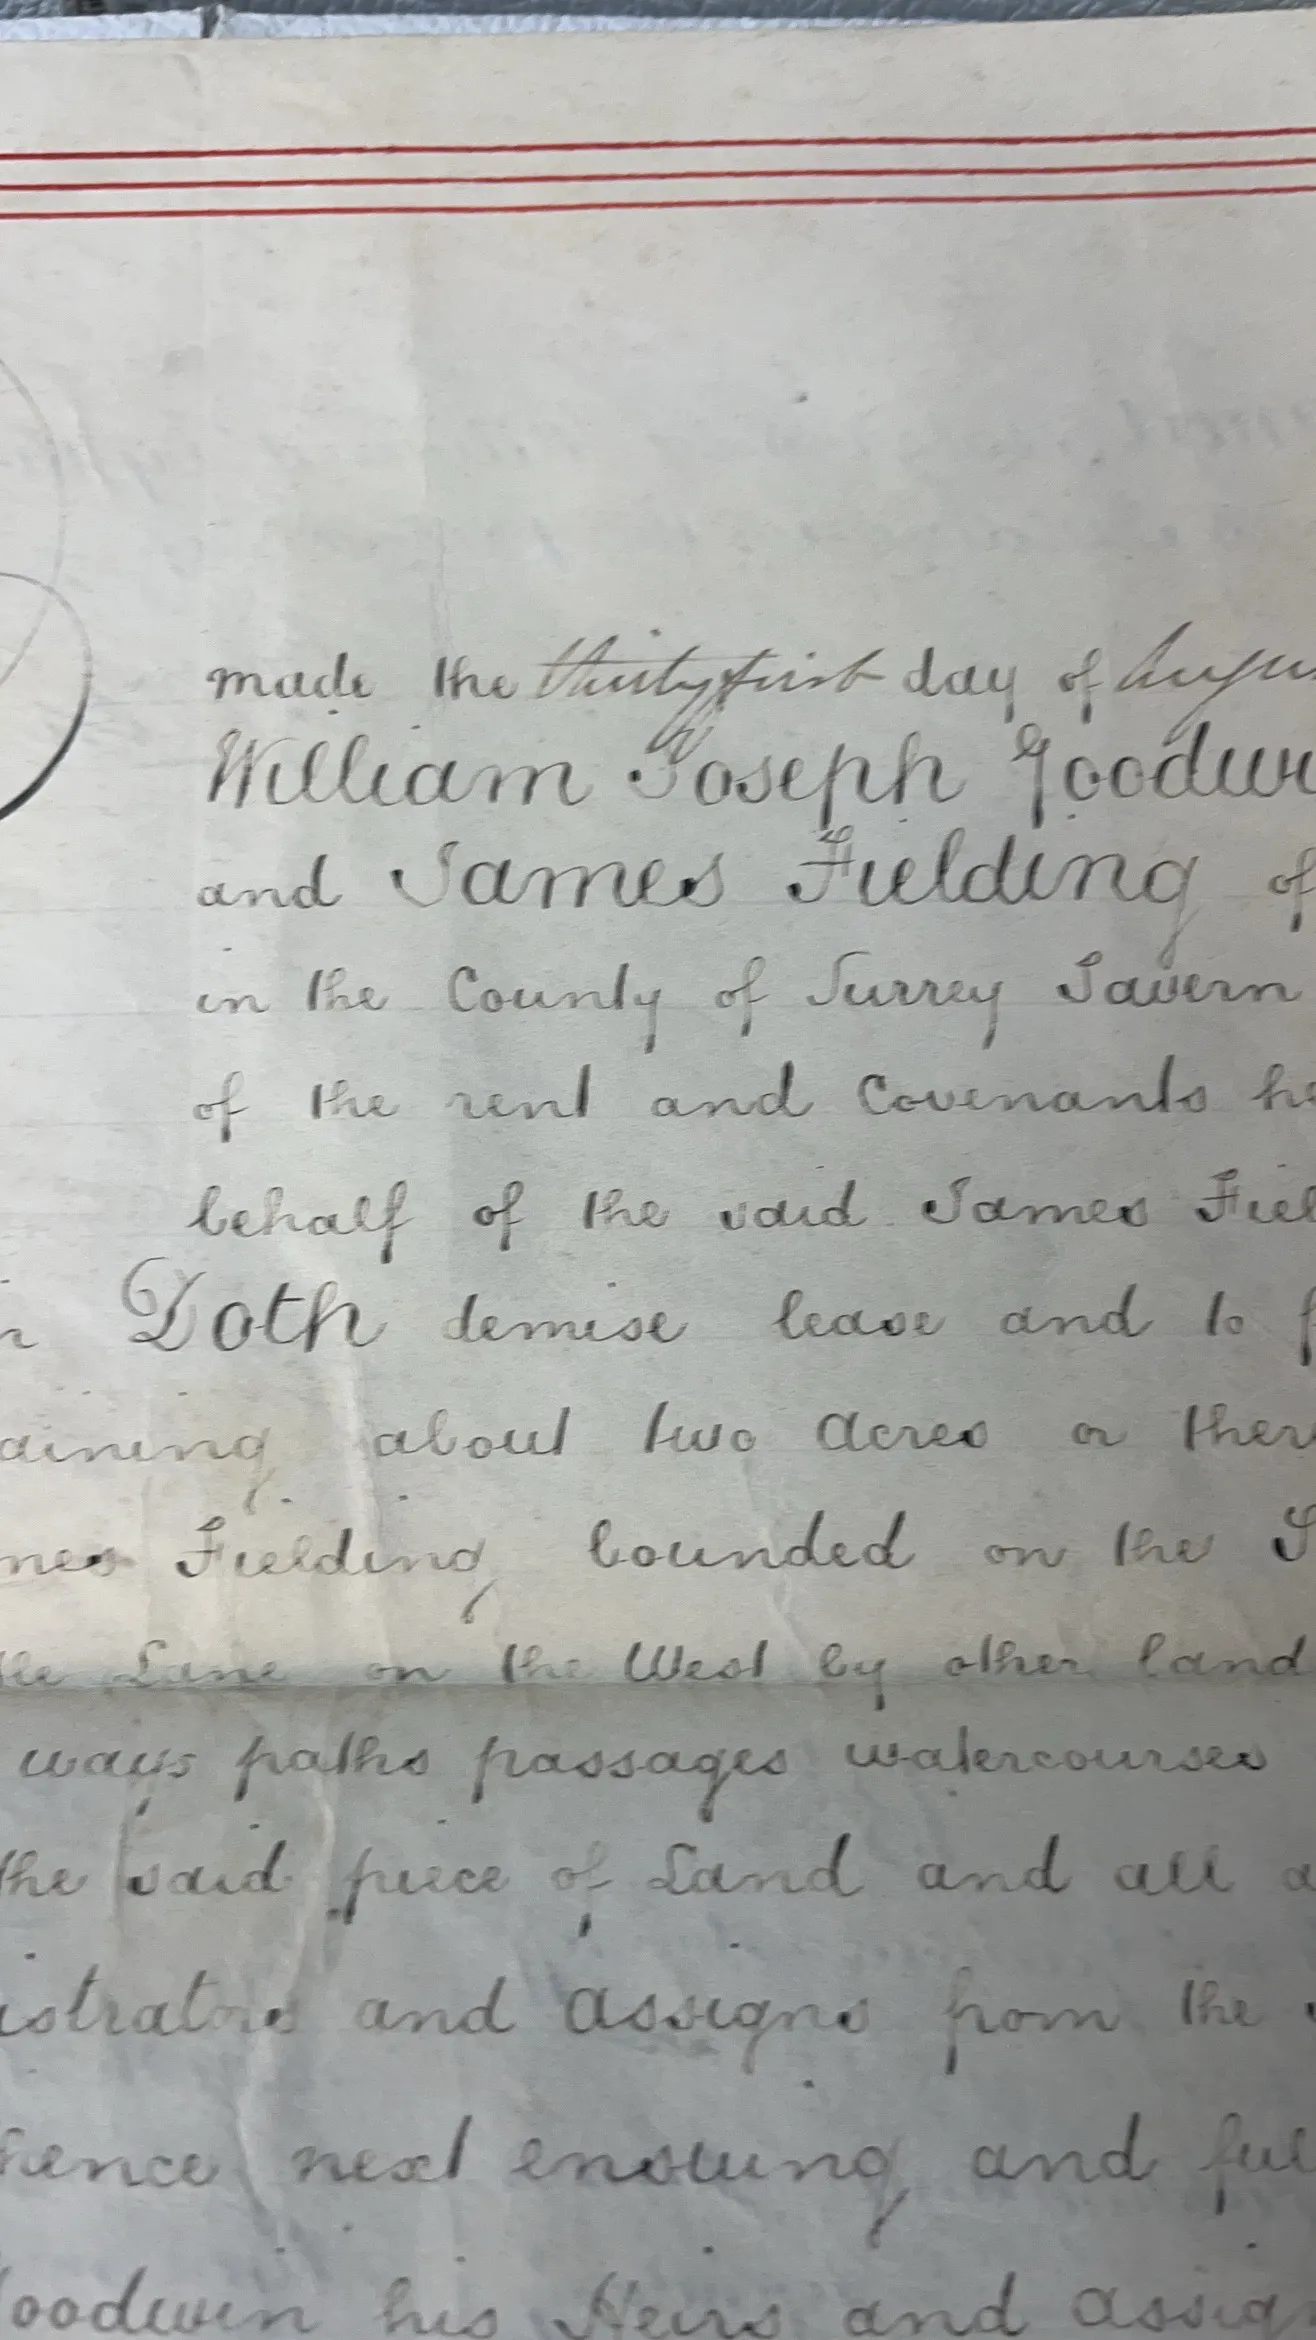 made the thirty first day of Augus
William Joseph Goodwi
and James Fielding of
in the County of Surrey Tavern
of the rent and Covenants he
behalf of the said James Fiel
Doth demise lease and to f
aining about two Acres or ther
mes Fielding bounded on the S
Lane on the West by other land
ways paths passages watercourses
the said piece of Land and all a
istrators and Assigns from the
hence next ensuing and ful
oodwin his Heirs and Assig